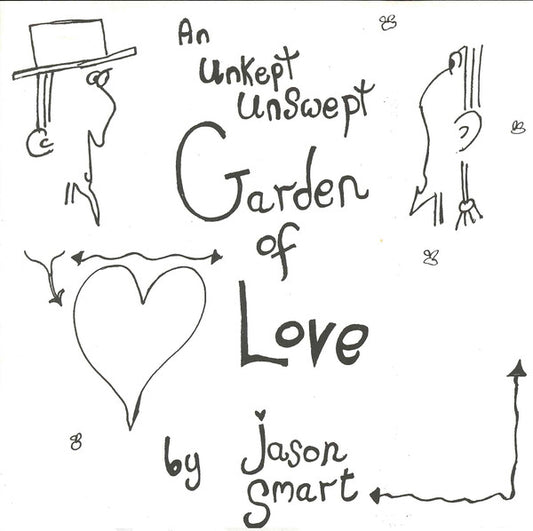 An
Unkept
UnSwept
Garden
of
Love
by Jason
Smart